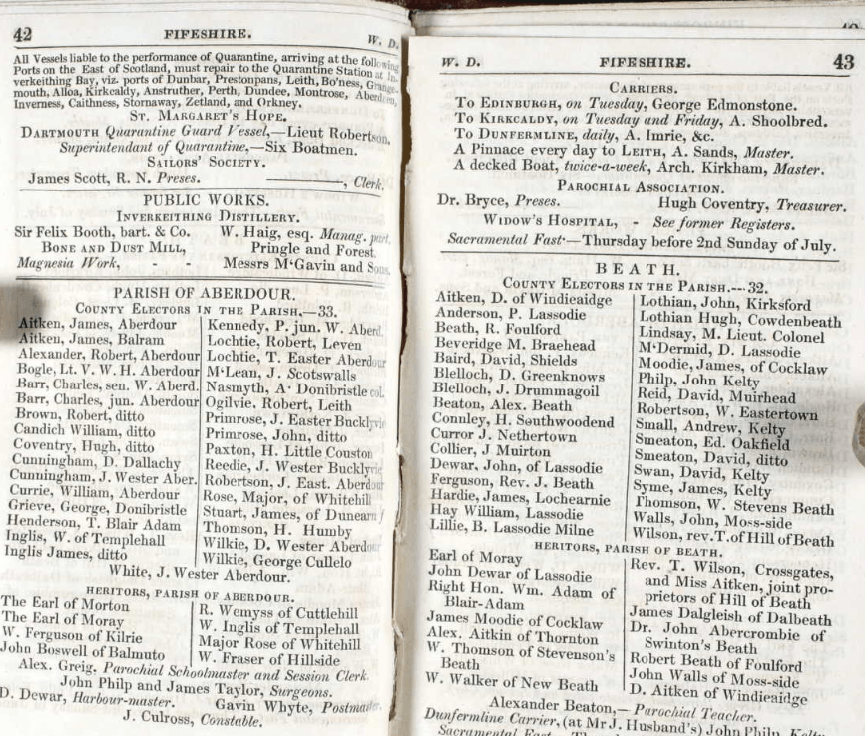 42 FIFESHIRE. W. D.
All Vessels liable to the performance of Quarantine, arriving at the following
Ports on the East of Scotland, must repair to the Quarantine Station at In-
verkeithing Bay, viz. ports of Dunbar, Prestonpans, Leith, Bo'ness, Grange-
mouth, Alloa, Kirkcaldy, Anstruther, Perth, Dundee, Montrose, Aberdeen,
Inverness, Caithness, Stornaway, Zetland, and Orkney.
ST. MARGARET'S HOPE.
DARTMOUTH Quarantine Guard Vessel,—Lieut Robertson,
Superintendant of Quarantine,—Six Boatmen.
SAILORS' SOCIETY.
James Scott, R. N. Preses. ————, Clerk.
PUBLIC WORKS.
INVERKEITHING DISTILLERY.
Sir Felix Booth, bart. & Co. W. Haig, esq. Manag. part.
BONE AND DUST MILL, Pringle and Forest.
Magnesia Work, - - Messrs M'Gavin and Sons.
PARISH OF ABERDOUR.
COUNTY ELECTORS IN THE PARISH.—33.
Aitken, James, Aberdour
Aitken, James, Balram
Alexander, Robert, Aberdour
Bogle, Lt. V. W. H. Aberdour
Barr, Charles, sen. W. Aberd.
Barr, Charles, jun. Aberdour
Brown, Robert, ditto
Candich William, ditto
Coventry, Hugh, ditto
Cunningham, D. Dallachy
Cunningham, J. Wester Aber.
Currie, William, Aberdour
Grieve, George, Donibristle
Henderson, T. Blair Adam
Inglis, W. of Templehall
Inglis James, ditto
Kennedy, P. jun. W. Aberd.
Lochtie, Robert, Leven
Lochtie, T. Easter Aberdour
M'Lean, J. Scotswalls
Nasmyth, A· Donibristle col.
Ogilvie, Robert, Leith
Primrose, J. Easter Bucklyvie
Primrose, John, ditto
Paxton, H. Little Couston
Reedie, J. Wester Bucklyvie
Robertson, J. East. Aberdour
Rose, Major, of Whitehill
Stuart, James, of Dunearn
Thomson, H. Humby
Wilkie, D. Wester Aberdour
Wilkie, George Cullelo
White, J. Wester Aberdour.
HERITORS, PARISH OF ABERDOUR.
The Earl of Morton
The Earl of Moray
W. Ferguson of Kilrie
John Boswell of Balmuto
R. Wemyss of Cuttlehill
W. Inglis of Templehall
Major Rose of Whitehill
W. Fraser of Hillside
Alex. Greig, Parochial Schoolmaster and Session Clerk.
John Philp and James Taylor, Surgeons.
D. Dewar, Harbour-master. Gavin Whyte, Postmaster.
J. Culross, Constable.
W. D. FIFESHIRE. 43
CARRIERS.
To EDINBURGH, on Tuesday, George Edmonstone.
To KIRKCALDY, on Tuesday and Friday, A. Shoolbred.
To DUNFERMLINE, daily, A. Imrie, &c.
A Pinnace every day to LEITH, A. Sands, Master.
A decked Boat, twice-a-week, Arch. Kirkham, Master.
PAROCHIAL ASSOCIATION.
Dr. Bryce, Preses. Hugh Coventry, Treasurer.
WIDOW'S HOSPITAL, - See former Registers.
Sacramental Fast·—Thursday before 2nd Sunday of July.
BEATH.
COUNTY ELECTORS IN THE PARISH.---32.
Aitken, D. of Windieaidge
Anderson, P. Lassodie
Beath, R. Foulford
Beveridge M. Braehead
Baird, David, Shields
Blelloch, D. Greenknows
Blelloch, J. Drummagoil
Beaton, Alex. Beath
Connley, H. Southwoodend
Curror J. Nethertown
Collier, J Muirton
Dewar, John, of Lassodie
Ferguson, Rev. J. Beath
Hardie, James, Lochearnie
Hay William, Lassodie
Lillie, B. Lassodie Milne
Lothian, John, Kirksford
Lothian Hugh, Cowdenbeath
Lindsay, M. Lieut. Colonel
M'Dermid, D. Lassodie
Moodie, James, of Cocklaw
Philp, John Kelty
Reid, David, Muirhead
Robertson, W. Eastertown
Small, Andrew, Kelty
Smeaton, Ed. Oakfield
Smeaton, David, ditto
Swan, David, Kelty
Syme, James, Kelty
Thomson, W. Stevens Beath
Walls, John, Moss-side
Wilson, rev.T. of Hill of Beath
HERITORS, PARISH OF BEATH.
Earl of Moray
John Dewar of Lassodie
Right Hon. Wm. Adam of
Blair-Adam
James Moodie of Cocklaw
Alex. Aitkin of Thornton
W. Thomson of Stevenson's
Beath
W. Walker of New Beath
Rev. T. Wilson, Crossgates,
and Miss Aitken, joint pro-
prietors of Hill of Beath
James Dalgleish of Dalbeath
Dr. John Abercrombie of
Swinton's Beath
Robert Beath of Foulford
John Walls of Moss-side
D. Aitken of Windieaidge
Alexander Beaton,— Parochial Teacher.
Dunfermline Carrier, (at Mr J. Husband's) John Philp, Kelty
Sacramental Fast